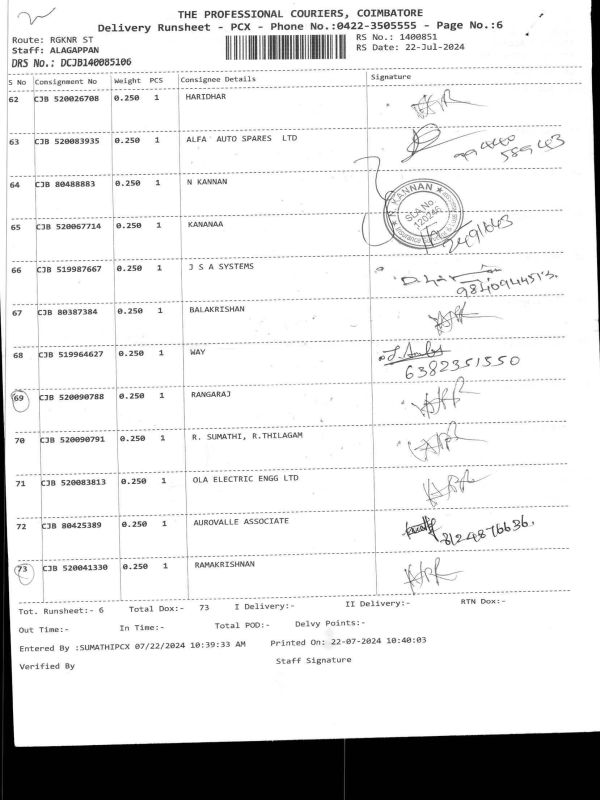 THE PROFESSIONAL COURIERS, COIMBATORE
Delivery Runsheet - PCX - Phone No.:0422-3505555 - Page No.:6
Route: RGKNR ST
RS No.: 1400851
Staff: ALAGAPPAN
RS Date: 22-Jul-2024
DRS No.: DCJB140085106
S No Consignment No Weight PCS Consignee Details Signature
62 CJB 520026708 0.250 1 HARIDHAR
63 CJB 520083935 0.250 1 ALFA AUTO SPARES LTD
64 CJB 80488883 0.250 1 N KANNAN
KANNAN
SLA No.
65 CJB 520067714 0.250 1 KANANAA
66 CJB 519987667 0.250 1 J S A SYSTEMS
67 CJB 80387384 0.250 1 BALAKRISHAN
68 CJB 519964627 0.250 1 WAY
6382351550
69 CJB 520090788 0.250 1 RANGARAJ
70 CJB 520090791 0.250 1 R. SUMATHI, R.THILAGAM
71 CJB 520083813 0.250 1 OLA ELECTRIC ENGG LTD
72 CJB 80425389 0.250 1 AUROVALLE ASSOCIATE
8124876636.
73 CJB 520041330 0.250 1 RAMAKRISHNAN
Tot. Runsheet:- 6 Total Dox:- 73 I Delivery:- II Delivery:- RTN Dox:-
Out Time:- In Time:- Total POD:- Delvy Points:-
Entered By :SUMATHIPCX 07/22/2024 10:39:33 AM Printed On: 22-07-2024 10:40:03
Verified By Staff Signature